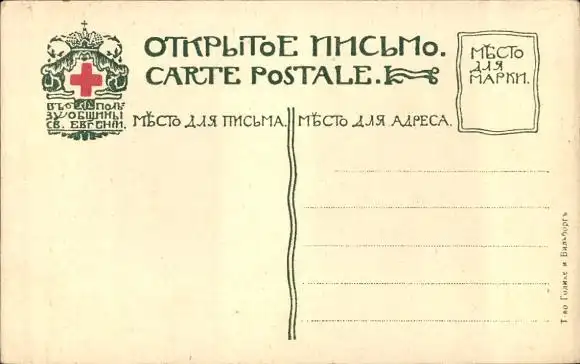 ОТКРЫТОЕ ПИСЬМО.
CARTE POSTALE.
МѢСТО
ДЛЯ
МАРКИ.
ВЪ ПОЛЬ
ЗУ ОБЩИНЫ
СВ. ЕВГЕНІИ.
МѢСТО ДЛЯ ПИСЬМА.
МѢСТО ДЛЯ АДРЕСА.
Т-во Голике и Вильборгъ